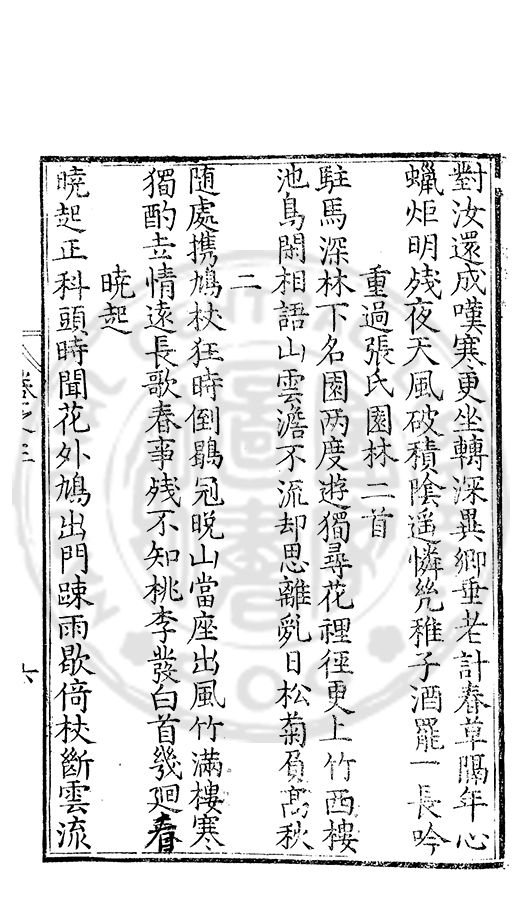 對汝還成嘆寒更坐轉深異鄉垂老計春草隔年心
蠟炬明残夜天風破積陰遥憐㡬稚子酒罷一長吟
重過張氏園林二首
駐馬深林下名園两度遊獨尋花裡徑更上竹西樓
池鳥閑相語山雲澹不流却思離亂日松菊負髙秋
二
随處携鳩杖狂時倒鶡冠晩山當座出風竹滿樓寒
獨酌去情遠長歌春事残不知桃李發白首幾廻春
晓起
晓起正科頭時聞花外鳩出門踈雨歇倚杖斷雲流
卷之三
六